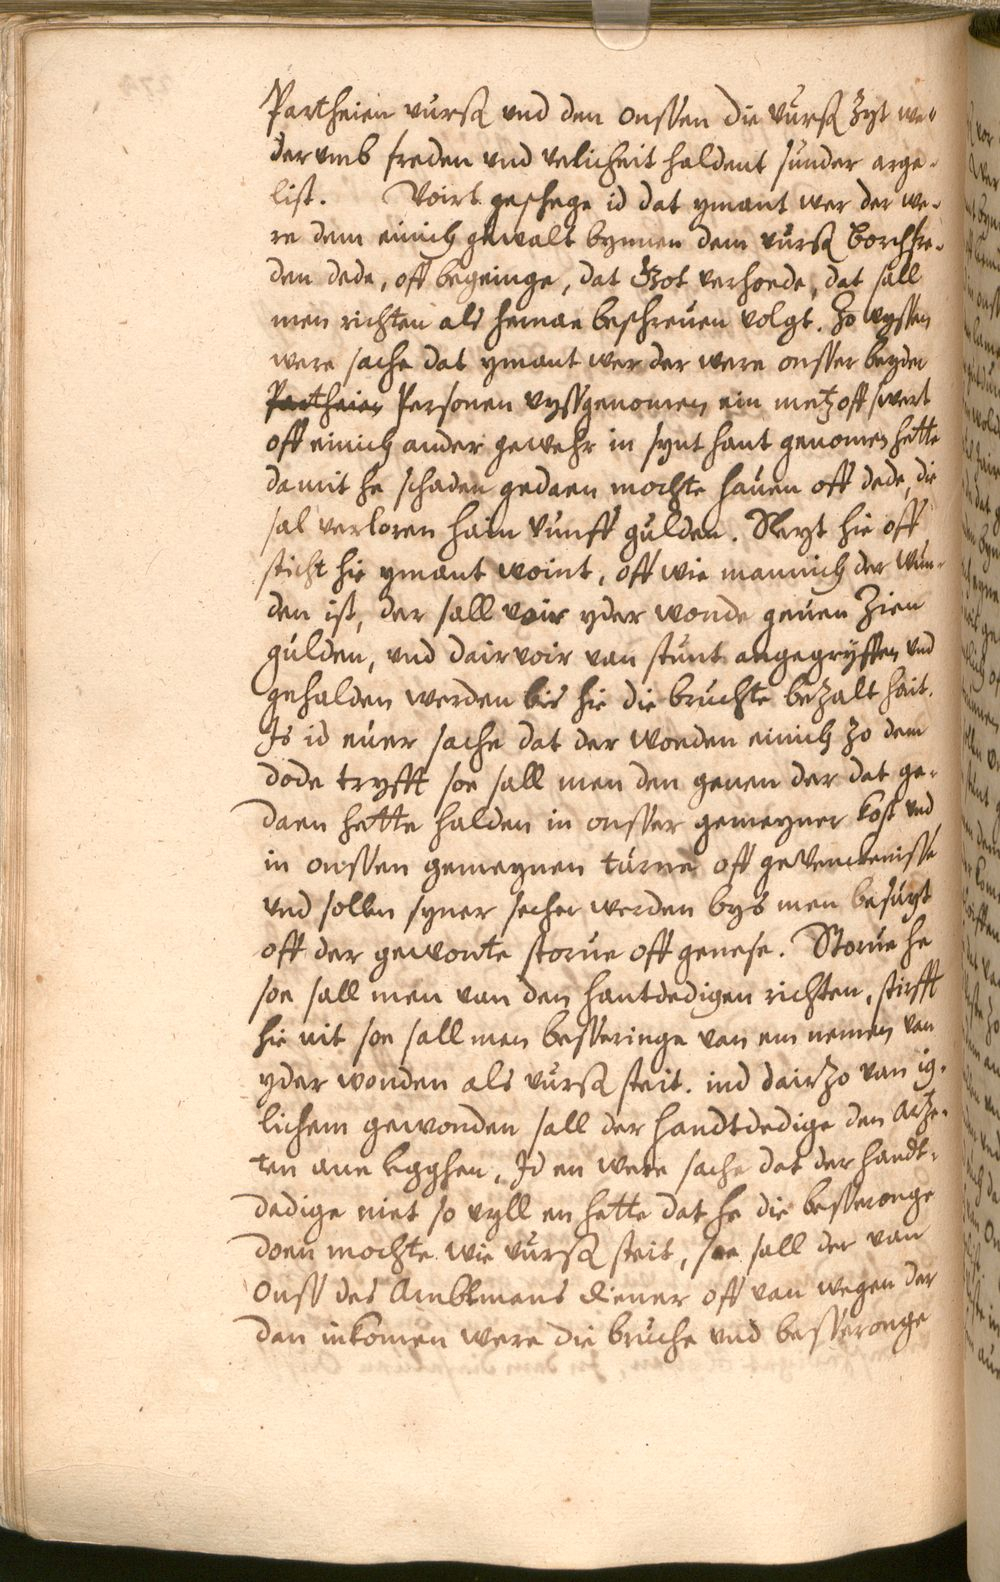 Partheien vurß vnd den onssen die vurß zyt we-
dervmb freden vnd velicheit haldent sunder arge-
list. Voirt geschege id dat ymant wer der we-
re dem einich gewalt bynnen dem vurß borchfre-
den dede, off begeinge, dat Got verhoede, dat sall
men richten als hernae beschreuen volgt. Zo wyssen
were sache dat ymant wer der were onsser beyder
Partheien Personen vyssgenomen ein metz off swert
off einich ander gewehr in synt hant genomen hette
damit he schaden gedaen mochte hauen off dede, die
sal verloren hain vunff gulden. Sleyt hie off
sticht hie ymant woint, off wie mannich der wun-
den ist, der sall voir yder wonde geuen Zien
gulden, vnd dairvoir van stunt angegryffen vnd
gehalden werden bis hie die bruchte bezalt hait.
Is id euer sache dat der wonden einich zo dem
dode tryfft soe sall men den genen der dat ge-
daen hette halden in onsser gemeyner kost vnd
in onssen gemeynen turne off gevenckenisse
vnd sollen syner secher werden bys men besuyt
off der gewonte storue off genese. Storue he
soe sall men van den hantdedigen richten, stirfft
hie nit soe sall men besseringe van em nemen van
yder wonden als vurß steit. ind dairzo van ig-
lichem gewonden sall der handtdedige den Artze-
ten aue legghen, Id en were sache dat der handt-
dedige niet so vyll en hette dat he die besseronge
doen mochte wie vurß steit, soe sall der van
Onss des Ambtmans diener off van wegen der
dan inkomen were die bruche vnd besseronge